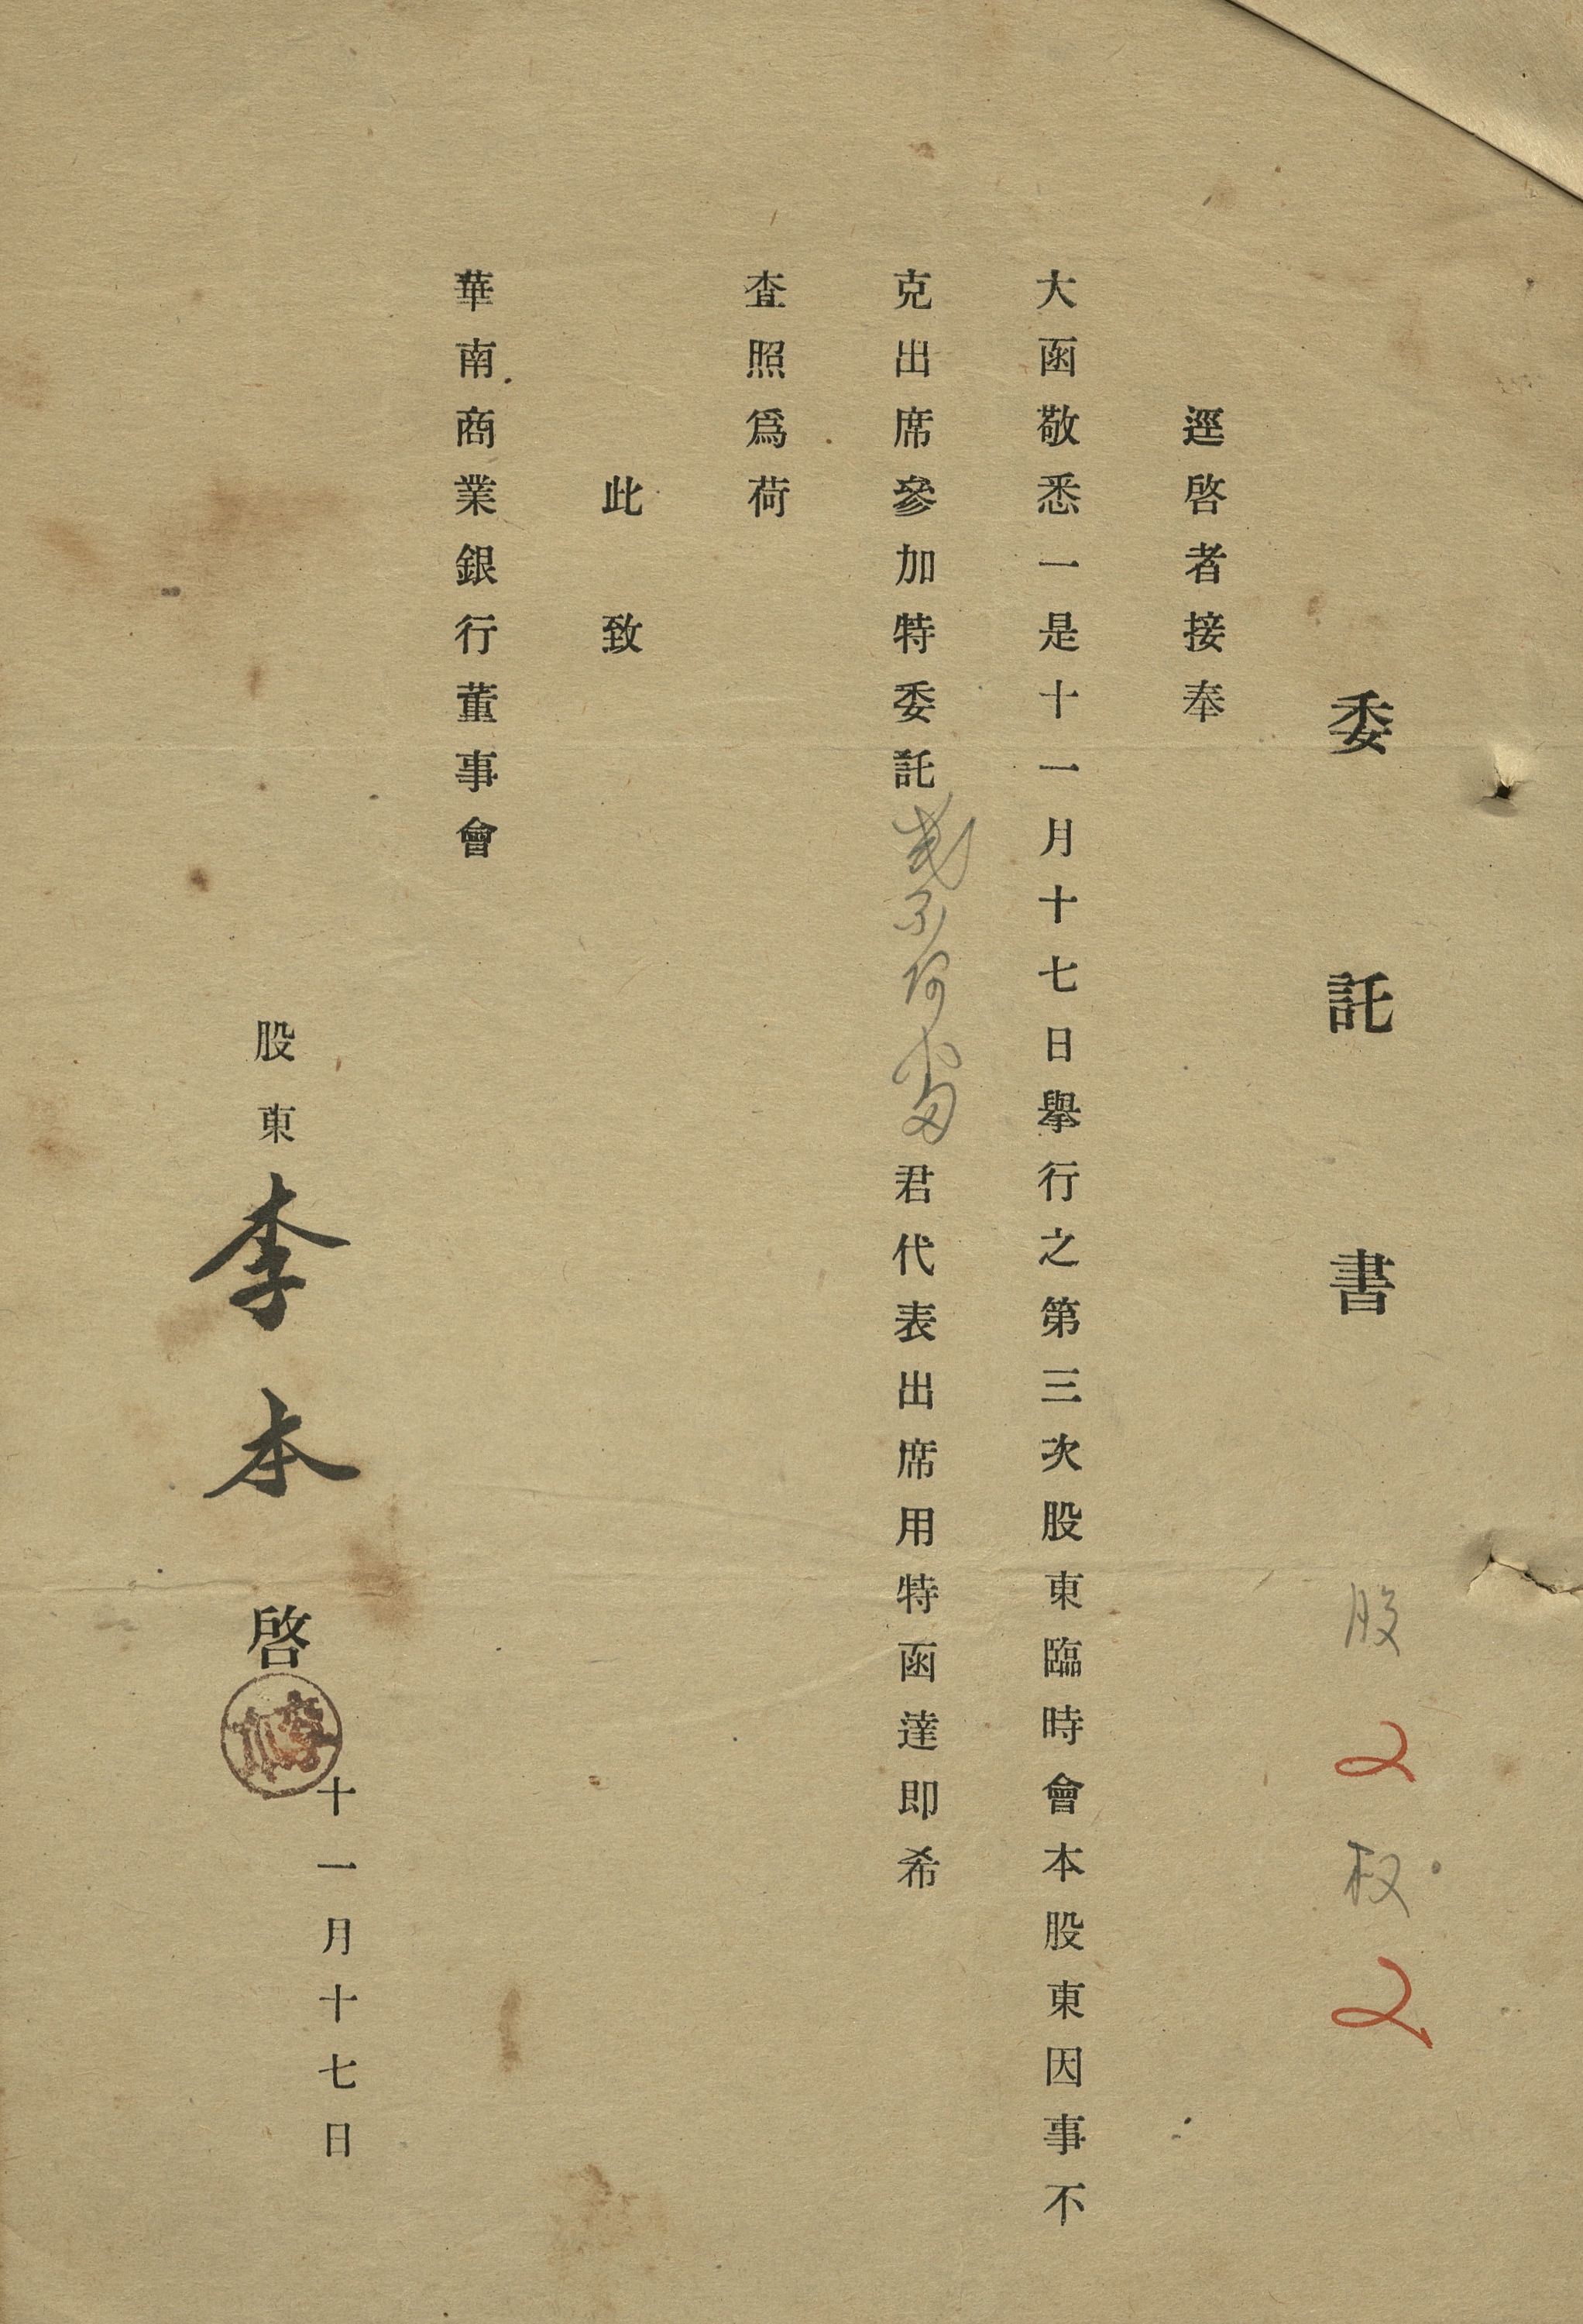 委託書 股 2 权 2
逕啓者接奉
大函敬悉一是十一月十七日舉行之第三次股東臨時會本股東因事不
克出席參加特委託 君代表出席用特函達即希
查照爲荷
此致
華南商業銀行董事會
十一月十七日
股東 李本 啓